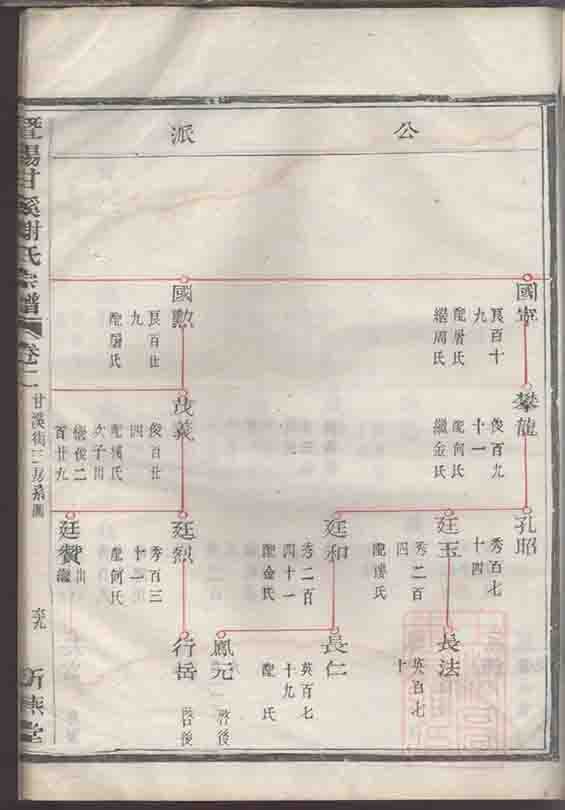 公派
國寧
艮百十
九
配屠氏
繼周氏
國勲
艮百廿
九
配屠氏
攀龍
俊百九
十一
配何氏
繼金氏
茂義
俊百廿
四
配樓氏
次子出
繼俊二
百廿九
孔昭
秀百七
十四
廷玉
秀二百
四
配樓氏
廷和
秀二百
四十一
配金氏
廷烈
秀百三
十一
配何氏
廷贊
出
繼
長法
英百七
十
長仁
英百七
十九
配 氏
鳳元
啓後
行岳
啓後
暨陽甘溪謝氏宗譜
卷二
甘溪街三房系圖